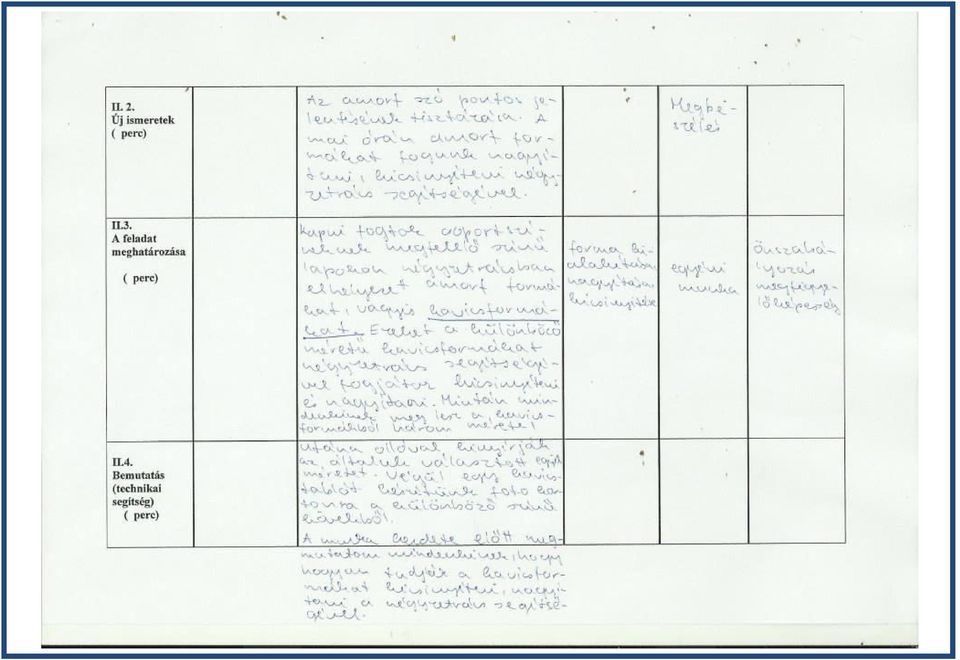 II. 2.
Új ismeretek
( perc)
Az amorf szó pontos je-
lentésének tisztázása. A
mai órán amorf for-
mákat fogunk nagyí-
tani, kicsinyíteni négy-
zetrács segítségével.
Megbe-
szélés
II.3.
A feladat
meghatározása
( perc)
kapni fogtok csoportszí-
neknek megfelelő színű
lapokon négyzetrácsban
elhelyezet amorf formá-
kat, vagyis kavicsformá-
kat. Ezeket a különböző
méretű kavicsformákat
négyzetrács segítségé-
vel fogjátok kicsinyíteni
és nagyítani. Miután min-
denkinek meg lesz a kavics-
formákból három mérete,
forma ki-
alakítása,
nagyítása,
kicsinyítése
egyéni
munka
önszabá-
lyozás
megfigye-
lőképesség
II.4.
Bemutatás
(technikai
segítség)
( perc)
utána ollóval kinyírják
az általuk választott egyik
méretet. Végül egy kavics-
tablót készítünk foto kar-
tonra a különböző színű
kövekből.
A munka kezdete előtt meg-
mutatom mindenkinek, hogy
hogyan tudják a kavicsfor-
mákat kicsinyíteni, nagyí-
tani a négyzetrács segítsé-
gével.